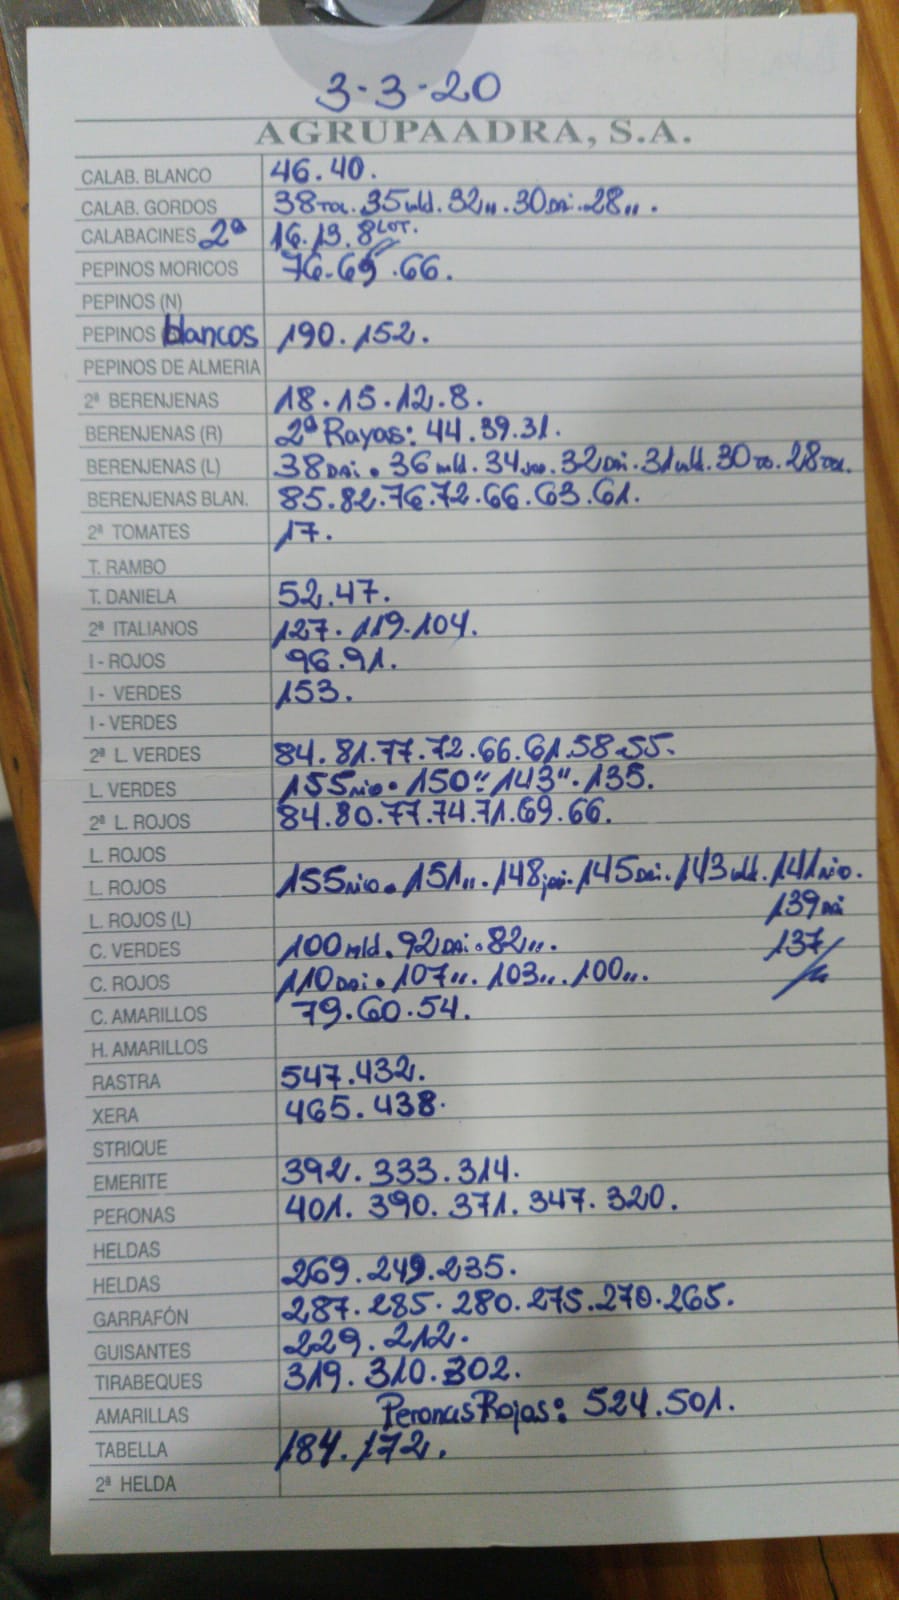 3-3-20
AGRUPAADRA, S.A.
CALAB. BLANCO 46.40.
CALAB. GORDOS 38 35 32,,.30Dai.28,,.
CALABACINES 2ª 16.13.8LOT.
PEPINOS MORICOS 76.69.66.
PEPINOS (N)
PEPINOS blancos 190.152.
PEPINOS DE ALMERIA
2ª BERENJENAS 18.15.12.8.
BERENJENAS (R) 2ª Rayas: 44.39.31.
BERENJENAS (L) 38Dai.36mld.34 32Dai.31mld.30 28
BERENJENAS BLAN. 85.82.76.72.66.63.61.
2ª TOMATES 17.
T. RAMBO
T. DANIELA 52.47.
2ª ITALIANOS 127.119.104.
I - ROJOS 96.91.
I - VERDES 153.
I - VERDES
2ª L. VERDES 84.81.77.72.66.61.58.55.
L. VERDES 155nio.150".143".135.
2ª L. ROJOS 84.80.77.74.71.69.66.
L. ROJOS
L. ROJOS 155nio.151,,.148 145Dai.143mld.141nio.
L. ROJOS (L) 139Dai
C. VERDES 100mld.92Dai.82,,. 137
C. ROJOS 110Dai.107,,.103,,.100,,.
C. AMARILLOS 79.60.54.
H. AMARILLOS
RASTRA 547.432.
XERA 465.438.
STRIQUE
EMERITE 392.333.314.
PERONAS 401.390.371.347.320.
HELDAS
HELDAS 269.249.235.
GARRAFÓN 287.285.280.275.270.265.
GUISANTES 229.212.
TIRABEQUES 319.310.302.
AMARILLAS Peronas Rojas: 524.501.
TABELLA 184.172.
2ª HELDA